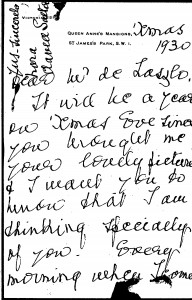 Yrs. Sincerely
QUEEN ANNE'S MANSIONS,
ST JAMES'S PARK, S.W.1.
Xmas
1930
Dear Mr de Laszlo,
It will be a year
on Xmas Eve since
you brought me
your lovely picture
& I want you to
know that I am
thinking specially
of you. Every
morning when I come